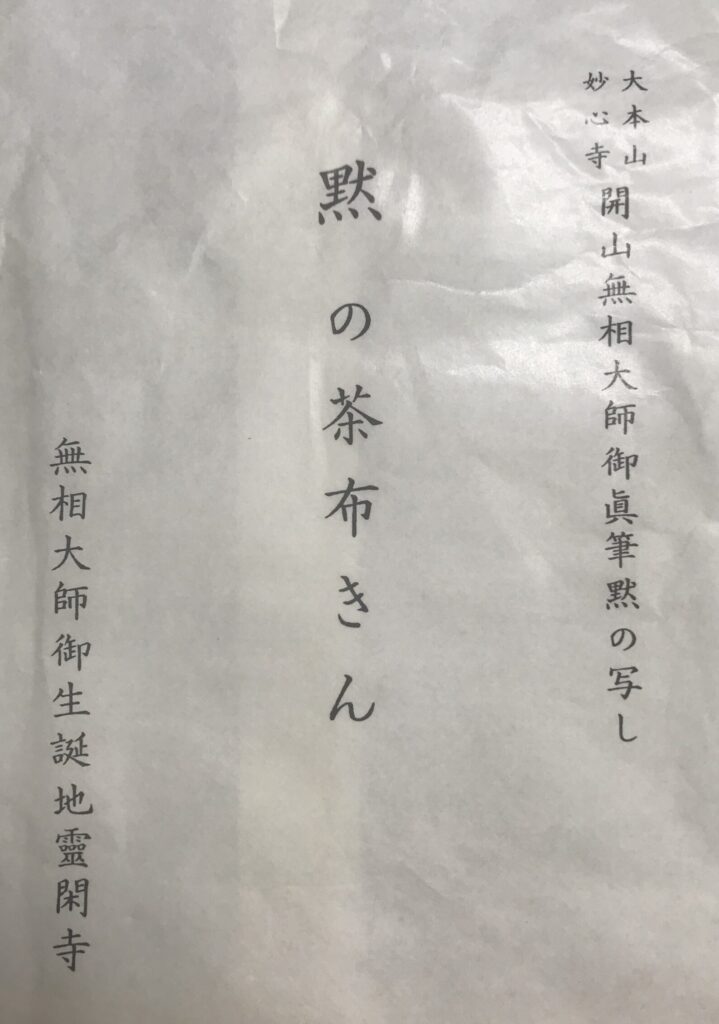 大本山
妙心寺
開山無相大師御眞筆黙の写し
黙の茶布きん
無相大師御生誕地靈閑寺